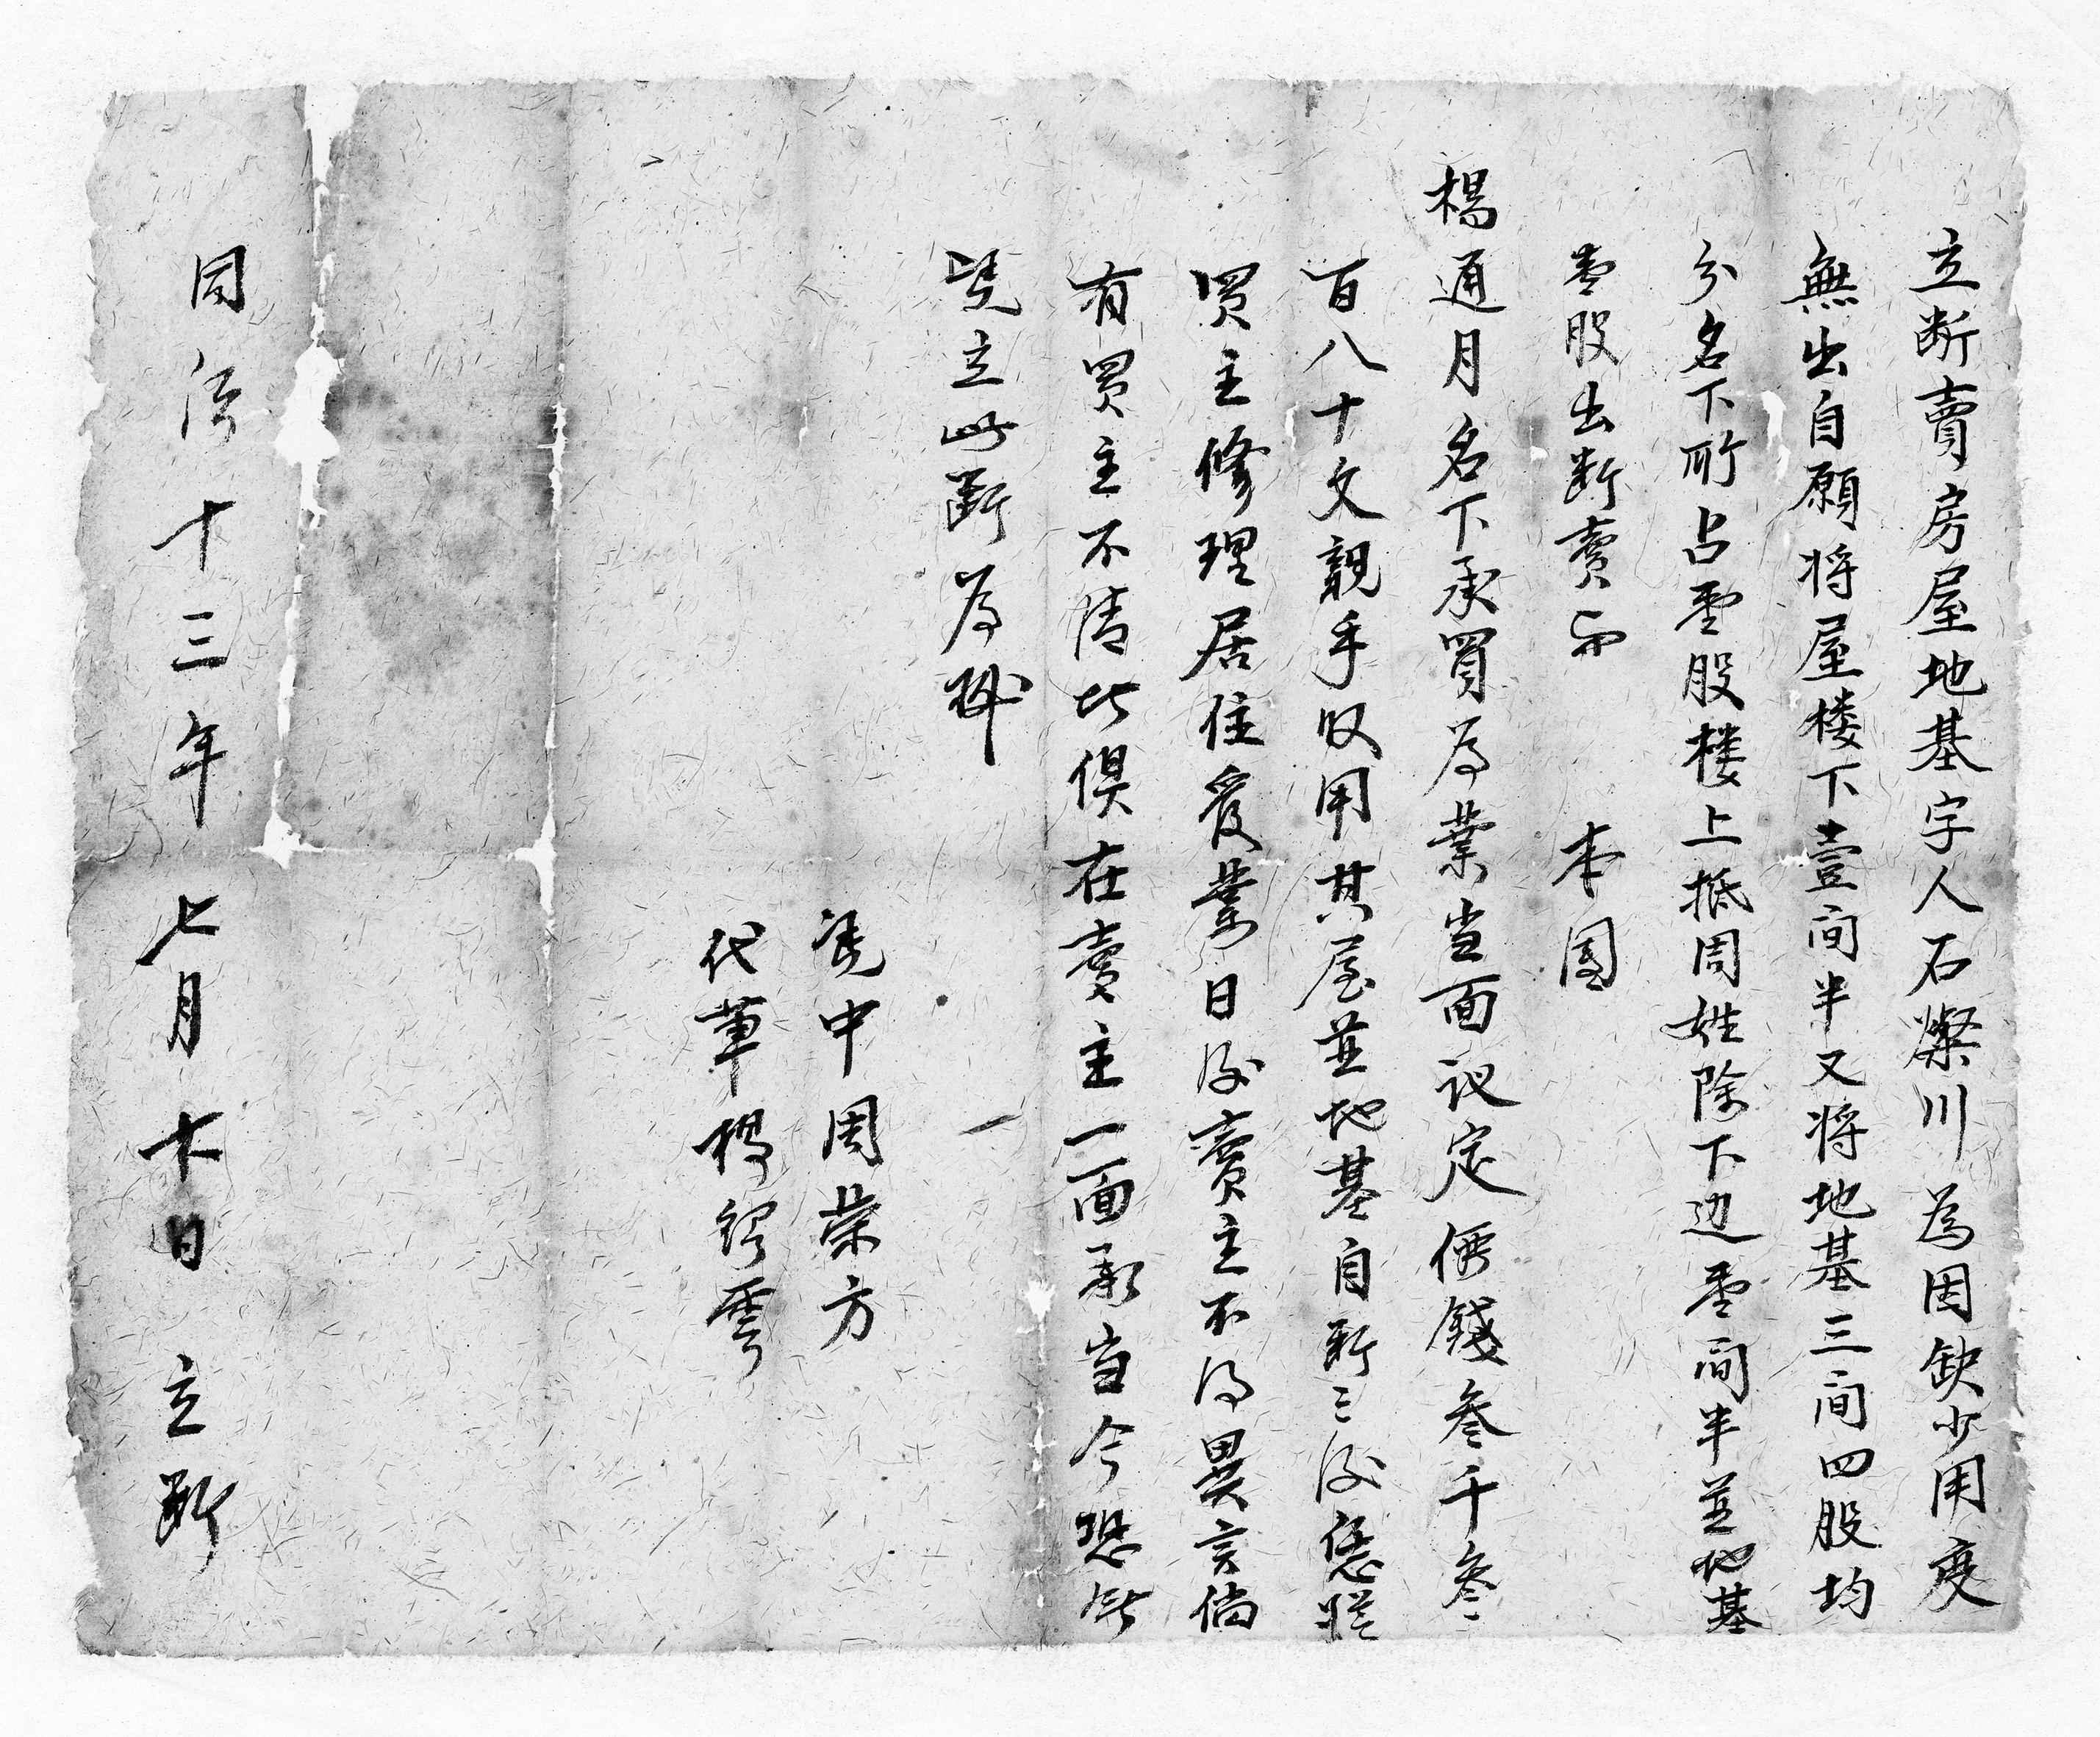 立断賣房屋地基字人石燦川為因缺少用度
無出自願将屋楼下壹间半又将地基三间四股均
分名下所占壹股楼上抵周姓除下边壹间半並地基
壹股出断賣与 本团
楊通月名下承買为業当面议定價錢叁千叁
百八十文親手収用其屋並地基自断之後恁從
買主修理居住管業日後賣主不得異言倘
有買主不清此俱在賣主一面承当今恐無
凭立此断为
凭中周荣方
代筆楊
同治十三年七月十日 立断